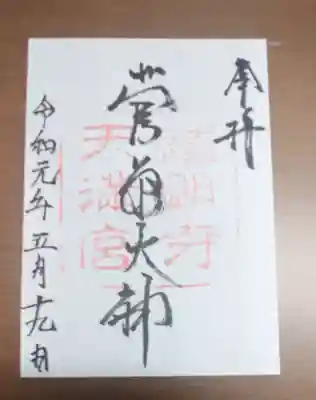 奉拝
道明寺
天満宮
大神
令和元年五月十九日